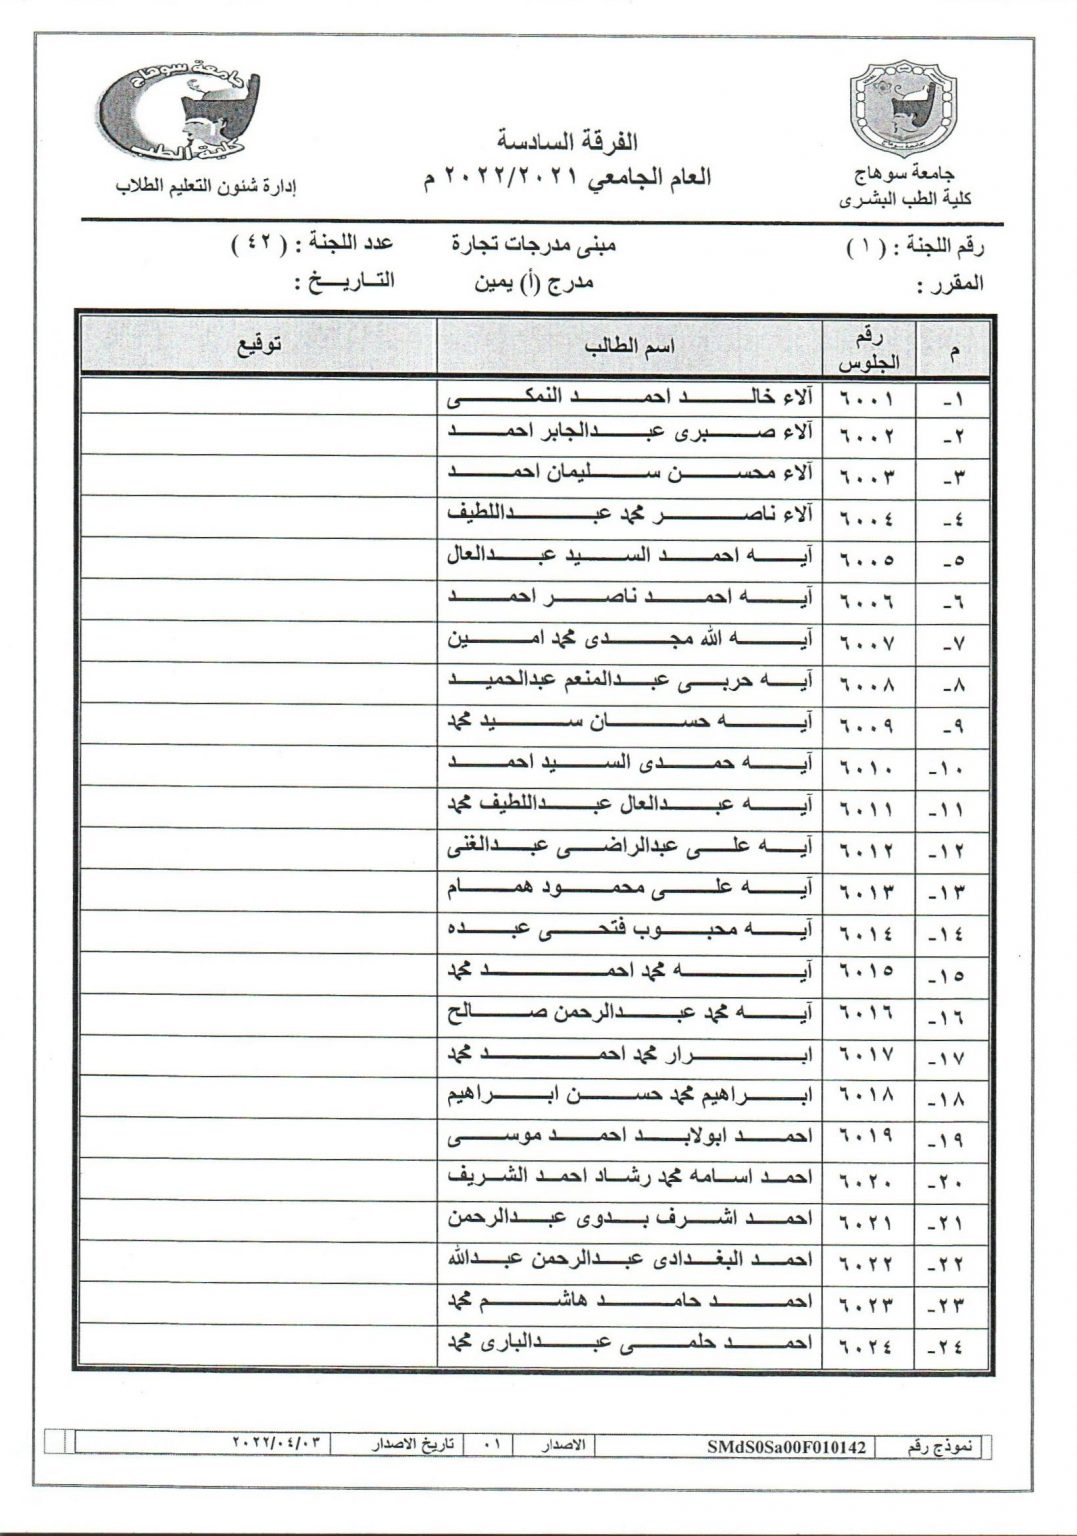 جامعة سوهاج
كلية الطب
الفرقة السادسة
العام الجامعي ٢٠٢٢/٢٠٢١ م
جامعة سوهاج
كلية الطب البشرى
إدارة شئون التعليم الطلاب
رقم اللجنة : ( ١ ) مبنى مدرجات تجارة عدد اللجنة : ( ٤٢ )
المقرر : مدرج (أ) يمين التاريخ :
م رقم الجلوس اسم الطالب توقيع
١- ٦٠٠١ آلاء خالد احمد النمكى
٢- ٦٠٠٢ آلاء صبرى عبدالجابر احمد
٣- ٦٠٠٣ آلاء محسن سليمان احمد
٤- ٦٠٠٤ آلاء ناصر محمد عبداللطيف
٥- ٦٠٠٥ آيه احمد السيد عبدالعال
٦- ٦٠٠٦ آيه احمد ناصر احمد
٧- ٦٠٠٧ آيه الله مجدى محمد امين
٨- ٦٠٠٨ آيه حربى عبدالمنعم عبدالحميد
٩- ٦٠٠٩ آيه حسان سيد محمد
١٠- ٦٠١٠ آيه حمدى السيد احمد
١١- ٦٠١١ آيه عبدالعال عبداللطيف محمد
١٢- ٦٠١٢ آيه على عبدالراضى عبدالغنى
١٣- ٦٠١٣ آيه على محمود همام
١٤- ٦٠١٤ آيه محبوب فتحى عبده
١٥- ٦٠١٥ آيه محمد احمد محمد
١٦- ٦٠١٦ آيه محمد عبدالرحمن صالح
١٧- ٦٠١٧ ابرار محمد احمد محمد
١٨- ٦٠١٨ ابراهيم محمد حسن ابراهيم
١٩- ٦٠١٩ احمد ابولابد احمد موسى
٢٠- ٦٠٢٠ احمد اسامه محمد رشاد احمد الشريف
٢١- ٦٠٢١ احمد اشرف بدوى عبدالرحمن
٢٢- ٦٠٢٢ احمد البغدادى عبدالرحمن عبدالله
٢٣- ٦٠٢٣ احمد حامد هاشم محمد
٢٤- ٦٠٢٤ احمد حلمى عبدالبارى محمد
نموذج رقم SMdS0Sa00F010142 الاصدار ٠١ تاريخ الاصدار ٢٠٢٢/٠٤/٠٣